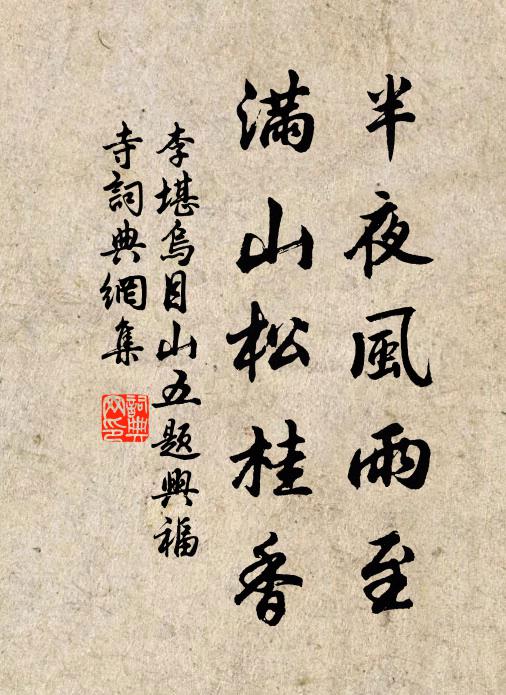 半夜風雨至
滿山松桂香
李堪烏目山五题興福
寺詞典網集
詞典
网印